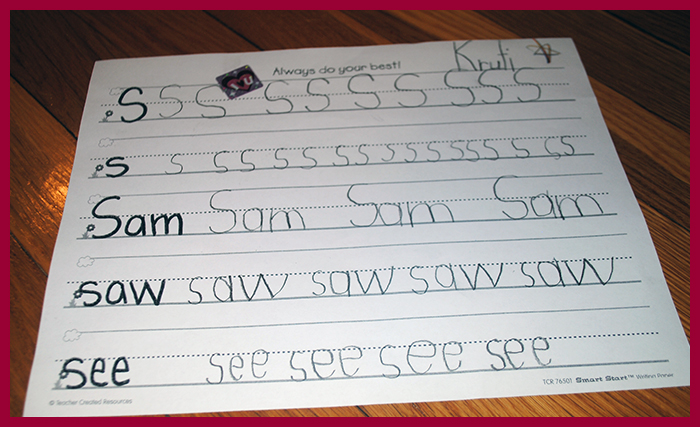 Always do your best! Kruti
S S S S S S S S S S
s s s s s s s s s s s s s s s s
Sam Sam Sam Sam
saw saw saw saw saw
see see see see see
© Teacher Created Resources
TCR 76501 Smart Start™ Writing Paper